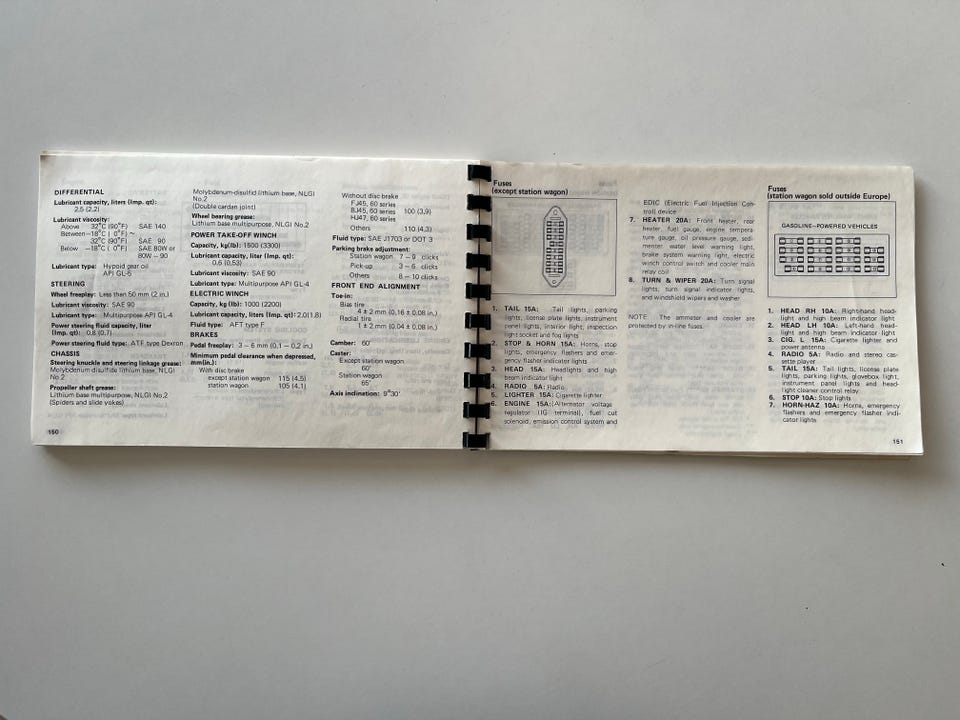 DIFFERENTIAL
Lubricant capacity, liters (Imp. qt):
2.5 (2.2)
Lubricant viscosity:
Above 32°C (90°F) SAE 140
Between −18°C ( 0°F) ~
32°C (90°F) SAE 90
Below −18°C ( 0°F) SAE 80W or
80W − 90
Lubricant type: Hypoid gear oil
API GL-5
STEERING
Wheel freeplay: Less than 50 mm (2 in.)
Lubricant viscosity: SAE 90
Lubricant type: Multipurpose API GL-4
Power steering fluid capacity, liter
(Imp. qt): 0.8 (0.7)
Power steering fluid type: ATF type Dexron
CHASSIS
Steering knuckle and steering linkage grease:
Molybdenum disulfide lithium base, NLGI
No.2
Propeller shaft grease:
Lithium base multipurpose, NLGI No.2
(Spiders and slide yokes)
150
Molybdenum-disulfid lithium base, NLGI
No.2
(Double cardan joint)
Wheel bearing grease:
Lithium base multipurpose, NLGI No.2
POWER TAKE-OFF WINCH
Capacity, kg(lb): 1500 (3300)
Lubricant capacity, liter (Imp. qt):
0.6 (0.53)
Lubricant viscosity: SAE 90
Lubricant type: Multipurpose API GL-4
ELECTRIC WINCH
Capacity, kg (lb): 1000 (2200)
Lubricant capacity, liters (Imp. qt): 2.0(1.8)
Fluid type: AFT type F
BRAKES
Pedal freeplay: 3 − 6 mm (0.1 − 0.2 in.)
Minimum pedal clearance when depressed,
mm(in.):
With disc brake
except station wagon 115 (4.5)
station wagon 105 (4.1)
Without disc brake
FJ45, 60 series
BJ45, 60 series 100 (3.9)
HJ47, 60 series
Others 110 (4.3)
Fluid type: SAE J1703 or DOT 3
Parking brake adjustment:
Station wagon 7 − 9 clicks
Pick-up 3 − 6 clicks
Others 8 − 10 clicks
FRONT END ALIGNMENT
Toe-in:
Bias tire
4 ± 2 mm (0.16 ± 0.08 in.)
Radial tire
1 ± 2 mm (0.04 ± 0.08 in.)
Camber: 60'
Caster:
Except station wagon
60'
Station wagon
65'
Axis inclination: 9°30'
Fuses
(except station wagon)
1. TAIL 15A: Tail lights, parking
lights, license plate lights, instrument
panel lights, interior light, inspection
light socket and fog lights
2. STOP & HORN 15A: Horns, stop
lights, emergency flashers and emer-
gency flasher indicator lights
3. HEAD 15A: Headlights and high
beam indicator light
4. RADIO 5A: Radio
5. LIGHTER 15A: Cigarette lighter
6. ENGINE 15A: Alternator voltage
regulator (IG terminal), fuel cut
solenoid, emission control system and
EDIC (Electric Fuel Injection Con-
trol) device
7. HEATER 20A: Front heater, rear
heater, fuel gauge, engine tempera
ture gauge, oil pressure gauge, sedi-
menter water level warning light,
brake system warning light, electric
winch control switch and cooler main
relay coil
8. TURN & WIPER 20A: Turn signal
lights, turn signal indicator lights,
and windshield wipers and washer
NOTE: The ammeter and cooler are
protected by in-line fuses.
Fuses
(station wagon sold outside Europe)
GASOLINE-POWERED VEHICLES
1. HEAD RH 10A: Right-hand head-
light and high beam indicator light
2. HEAD LH 10A: Left-hand head-
light and high beam indicator light
3. CIG. L 15A: Cigarette lighter and
power antenna
4. RADIO 5A: Radio and stereo cas-
sette player
5. TAIL 15A: Tail lights, license plate
lights, parking lights, glovebox light,
instrument panel lights and head-
light cleaner control relay
6. STOP 10A: Stop lights
7. HORN-HAZ 10A: Horns, emergency
flashers and emergency flasher indi-
cator lights
151